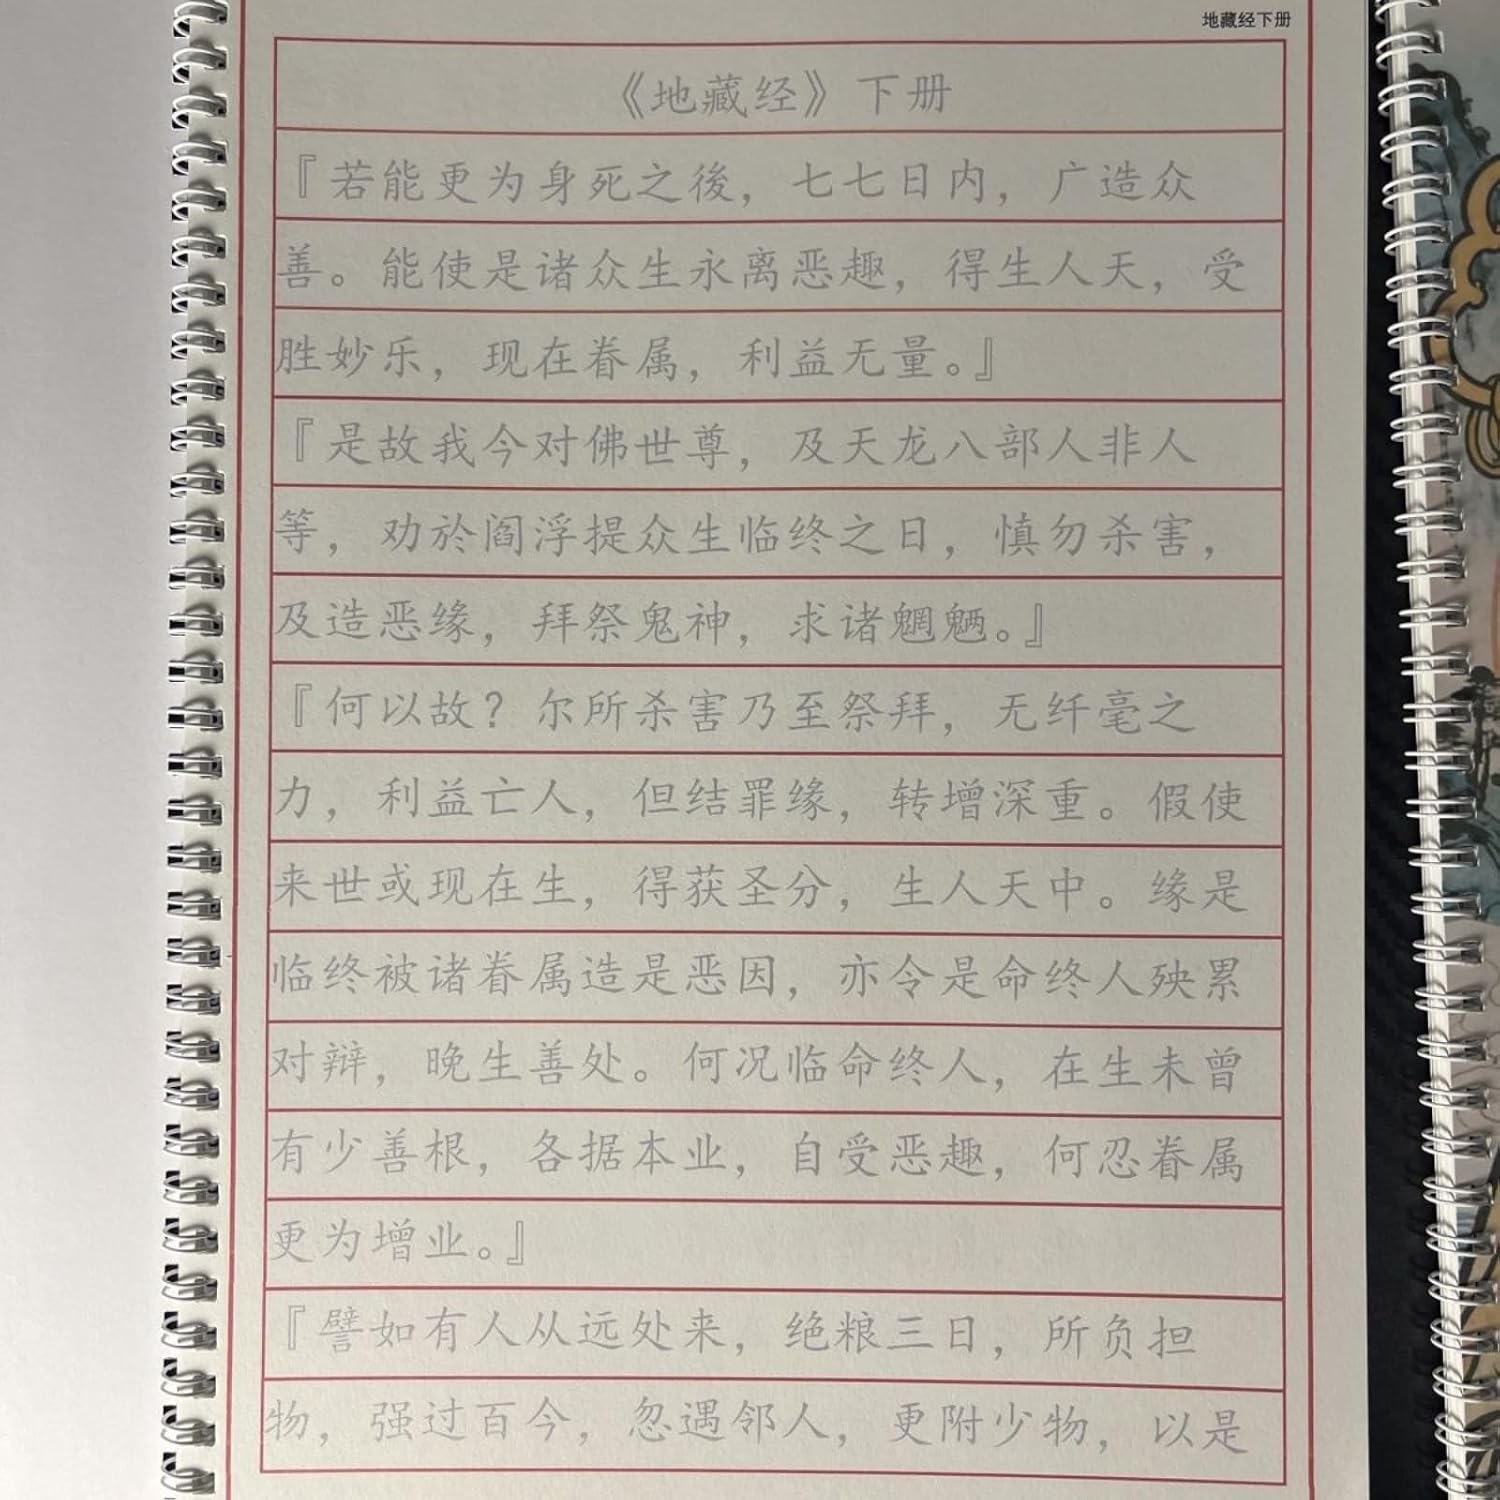 地藏经下册
《地藏经》下册
『若能更为身死之後，七七日内，广造众
善。能使是诸众生永离恶趣，得生人天，受
胜妙乐，现在眷属，利益无量。』
『是故我今对佛世尊，及天龙八部人非人
等，劝於阎浮提众生临终之日，慎勿杀害，
及造恶缘，拜祭鬼神，求诸魍魉。』
『何以故？尔所杀害乃至祭拜，无纤毫之
力，利益亡人，但结罪缘，转增深重。假使
来世或现在生，得获圣分，生人天中。缘是
临终被诸眷属造是恶因，亦令是命终人殃累
对辩，晚生善处。何况临命终人，在生未曾
有少善根，各据本业，自受恶趣，何忍眷属
更为增业。』
『譬如有人从远处来，绝粮三日，所负担
物，强过百今，忽遇邻人，更附少物，以是